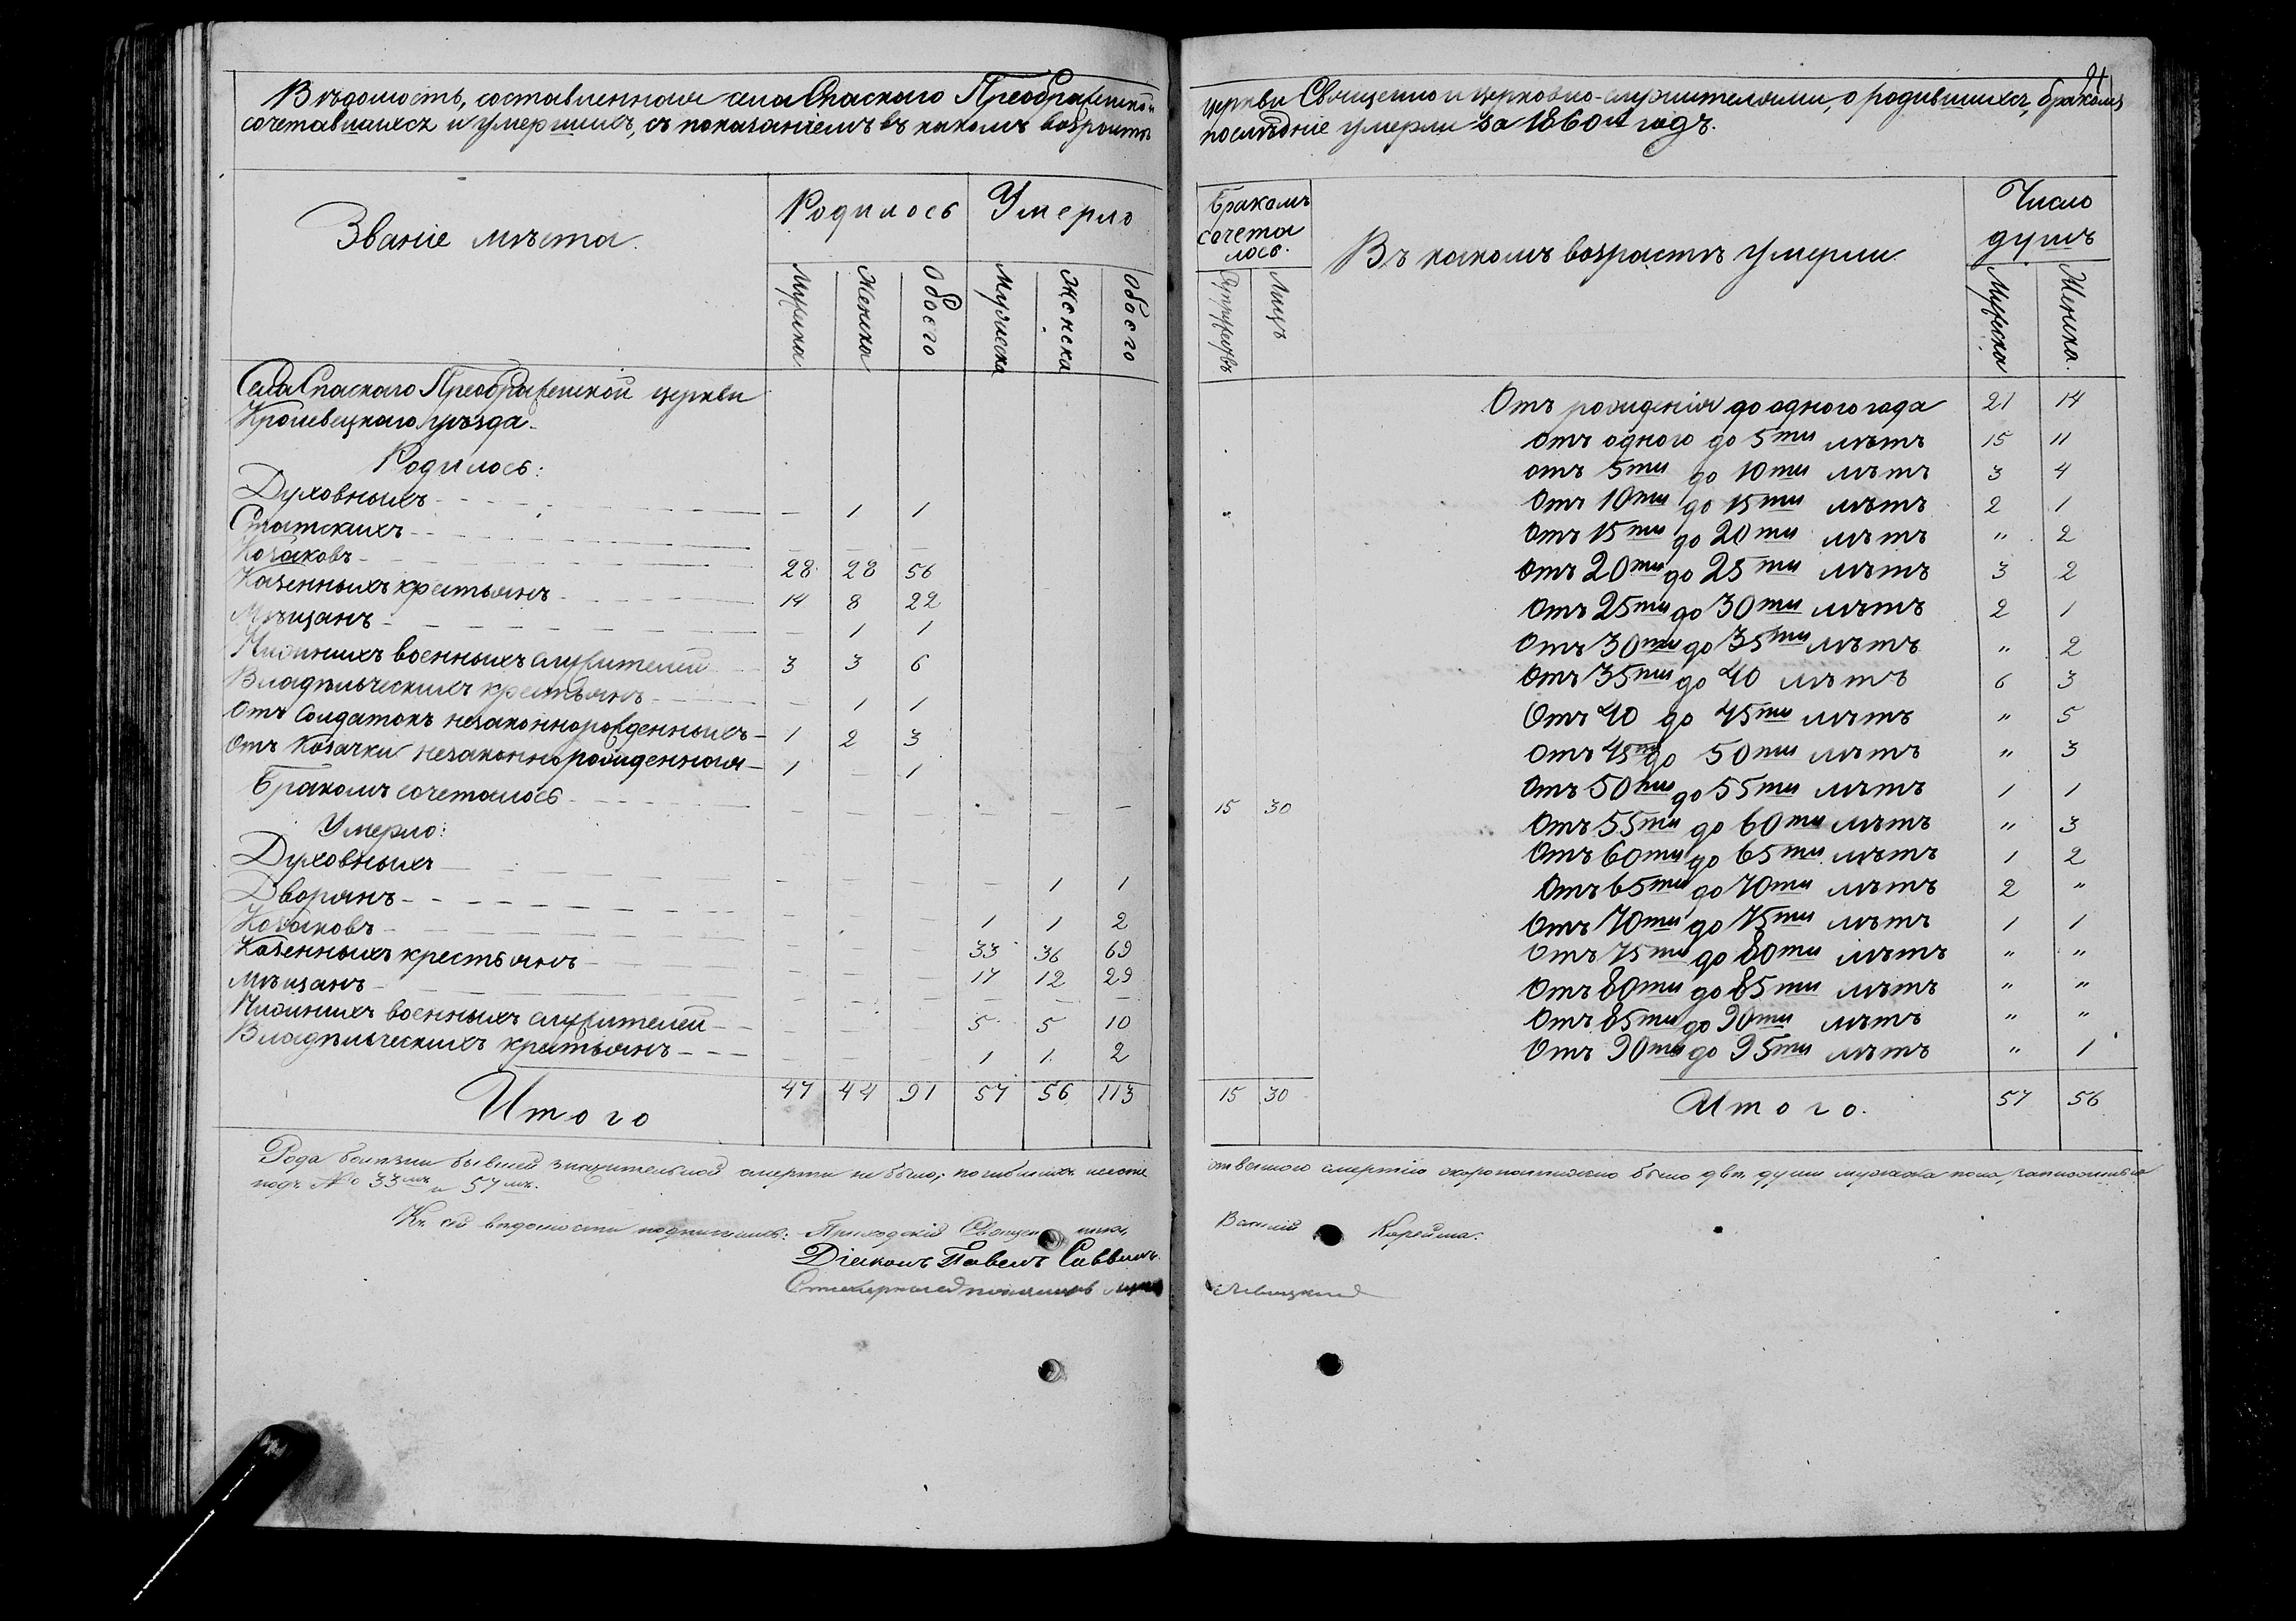 Вѣдомость, составленная села Спаскаго Преображенской
сочетавшихся и умершихъ, съ показаніемъ въ какомъ возрастѣ
Званіе мѣста.
Родилось Умерло
Мужеска Женска Обоего Мужеска Женска Обоего
Села Спаскаго Преображенской церкви
Кролевецкаго уѣзда.
Родилось:
Духовныхъ — 1 1
Статскихъ — — —
Козаковъ 28 28 56
Казенныхъ крестьянъ 14 8 22
Мѣщанъ — 1 1
Нижнихъ военныхъ служителей 3 3 6
Владѣльческихъ крестьянъ — 1 1
Отъ Солдатокъ незаконнорожденныхъ 1 2 3
Отъ Козачки незаконнорожденная 1 — 1
Бракомъ сочеталось — — — — — —
Умерло:
Духовныхъ — — — — 1 1
Дворянъ — — — 1 1 2
Козаковъ — 33 36 69
Казенныхъ крестьянъ — — — 17 12 29
Мѣщанъ — — — — — —
Нижнихъ военныхъ служителей — — — 5 5 10
Владѣльческихъ крестьянъ — — — 1 1 2
Итого 47 44 91 57 56 113
Рода болѣзни бывшей значительной смерти не было; погибшихъ неесте
подъ № 33мъ и 57мъ.
Къ сей вѣдомости подписались: Приходскій Священ ника,
Діяконъ Павелъ Саввичъ
91
церкви Священно и церковно-служителями, о родившихся, бракомъ
послѣдніе умерли за 1860й годъ.
Бракомъ
сочета
лось.
Супружествъ Лицъ
Въ какомъ возрастѣ умерли
Число
душъ
Мужеска Женска.
Отъ рожденія до одного года 21 14
Отъ одного до 5ти лѣтъ 15 11
отъ 5ти до 10ти лѣтъ 3 4
Отъ 10ти до 15ти лѣтъ 2 1
Отъ 15ти до 20ти лѣтъ " 2
Отъ 20ти до 25ти лѣтъ 3 2
Отъ 25ти до 30ти лѣтъ 2 1
Отъ 30ти до 35ти лѣтъ " 2
Отъ 35ти до 40 лѣтъ 6 3
Отъ 40 до 45ти лѣтъ " 5
Отъ 45ти до 50ти лѣтъ " 3
Отъ 50ти до 55ти лѣтъ 1 1
15 30
Отъ 55ти до 60ти лѣтъ " 3
Отъ 60ти до 65ти лѣтъ 1 2
Отъ 65ти до 70ти лѣтъ 2 "
Отъ 70ти до 75ти лѣтъ 1 1
Отъ 75ти до 80ти лѣтъ " "
Отъ 80ти до 85ти лѣтъ " "
Отъ 85ти до 90ти лѣтъ " "
Отъ 90ти до 95ти лѣтъ " 1
15 30 Итого. 57 56
ственною смертію скоропостижно было двѣ души мужеска пола, записанныя
Василій Корейша.
Левицкий